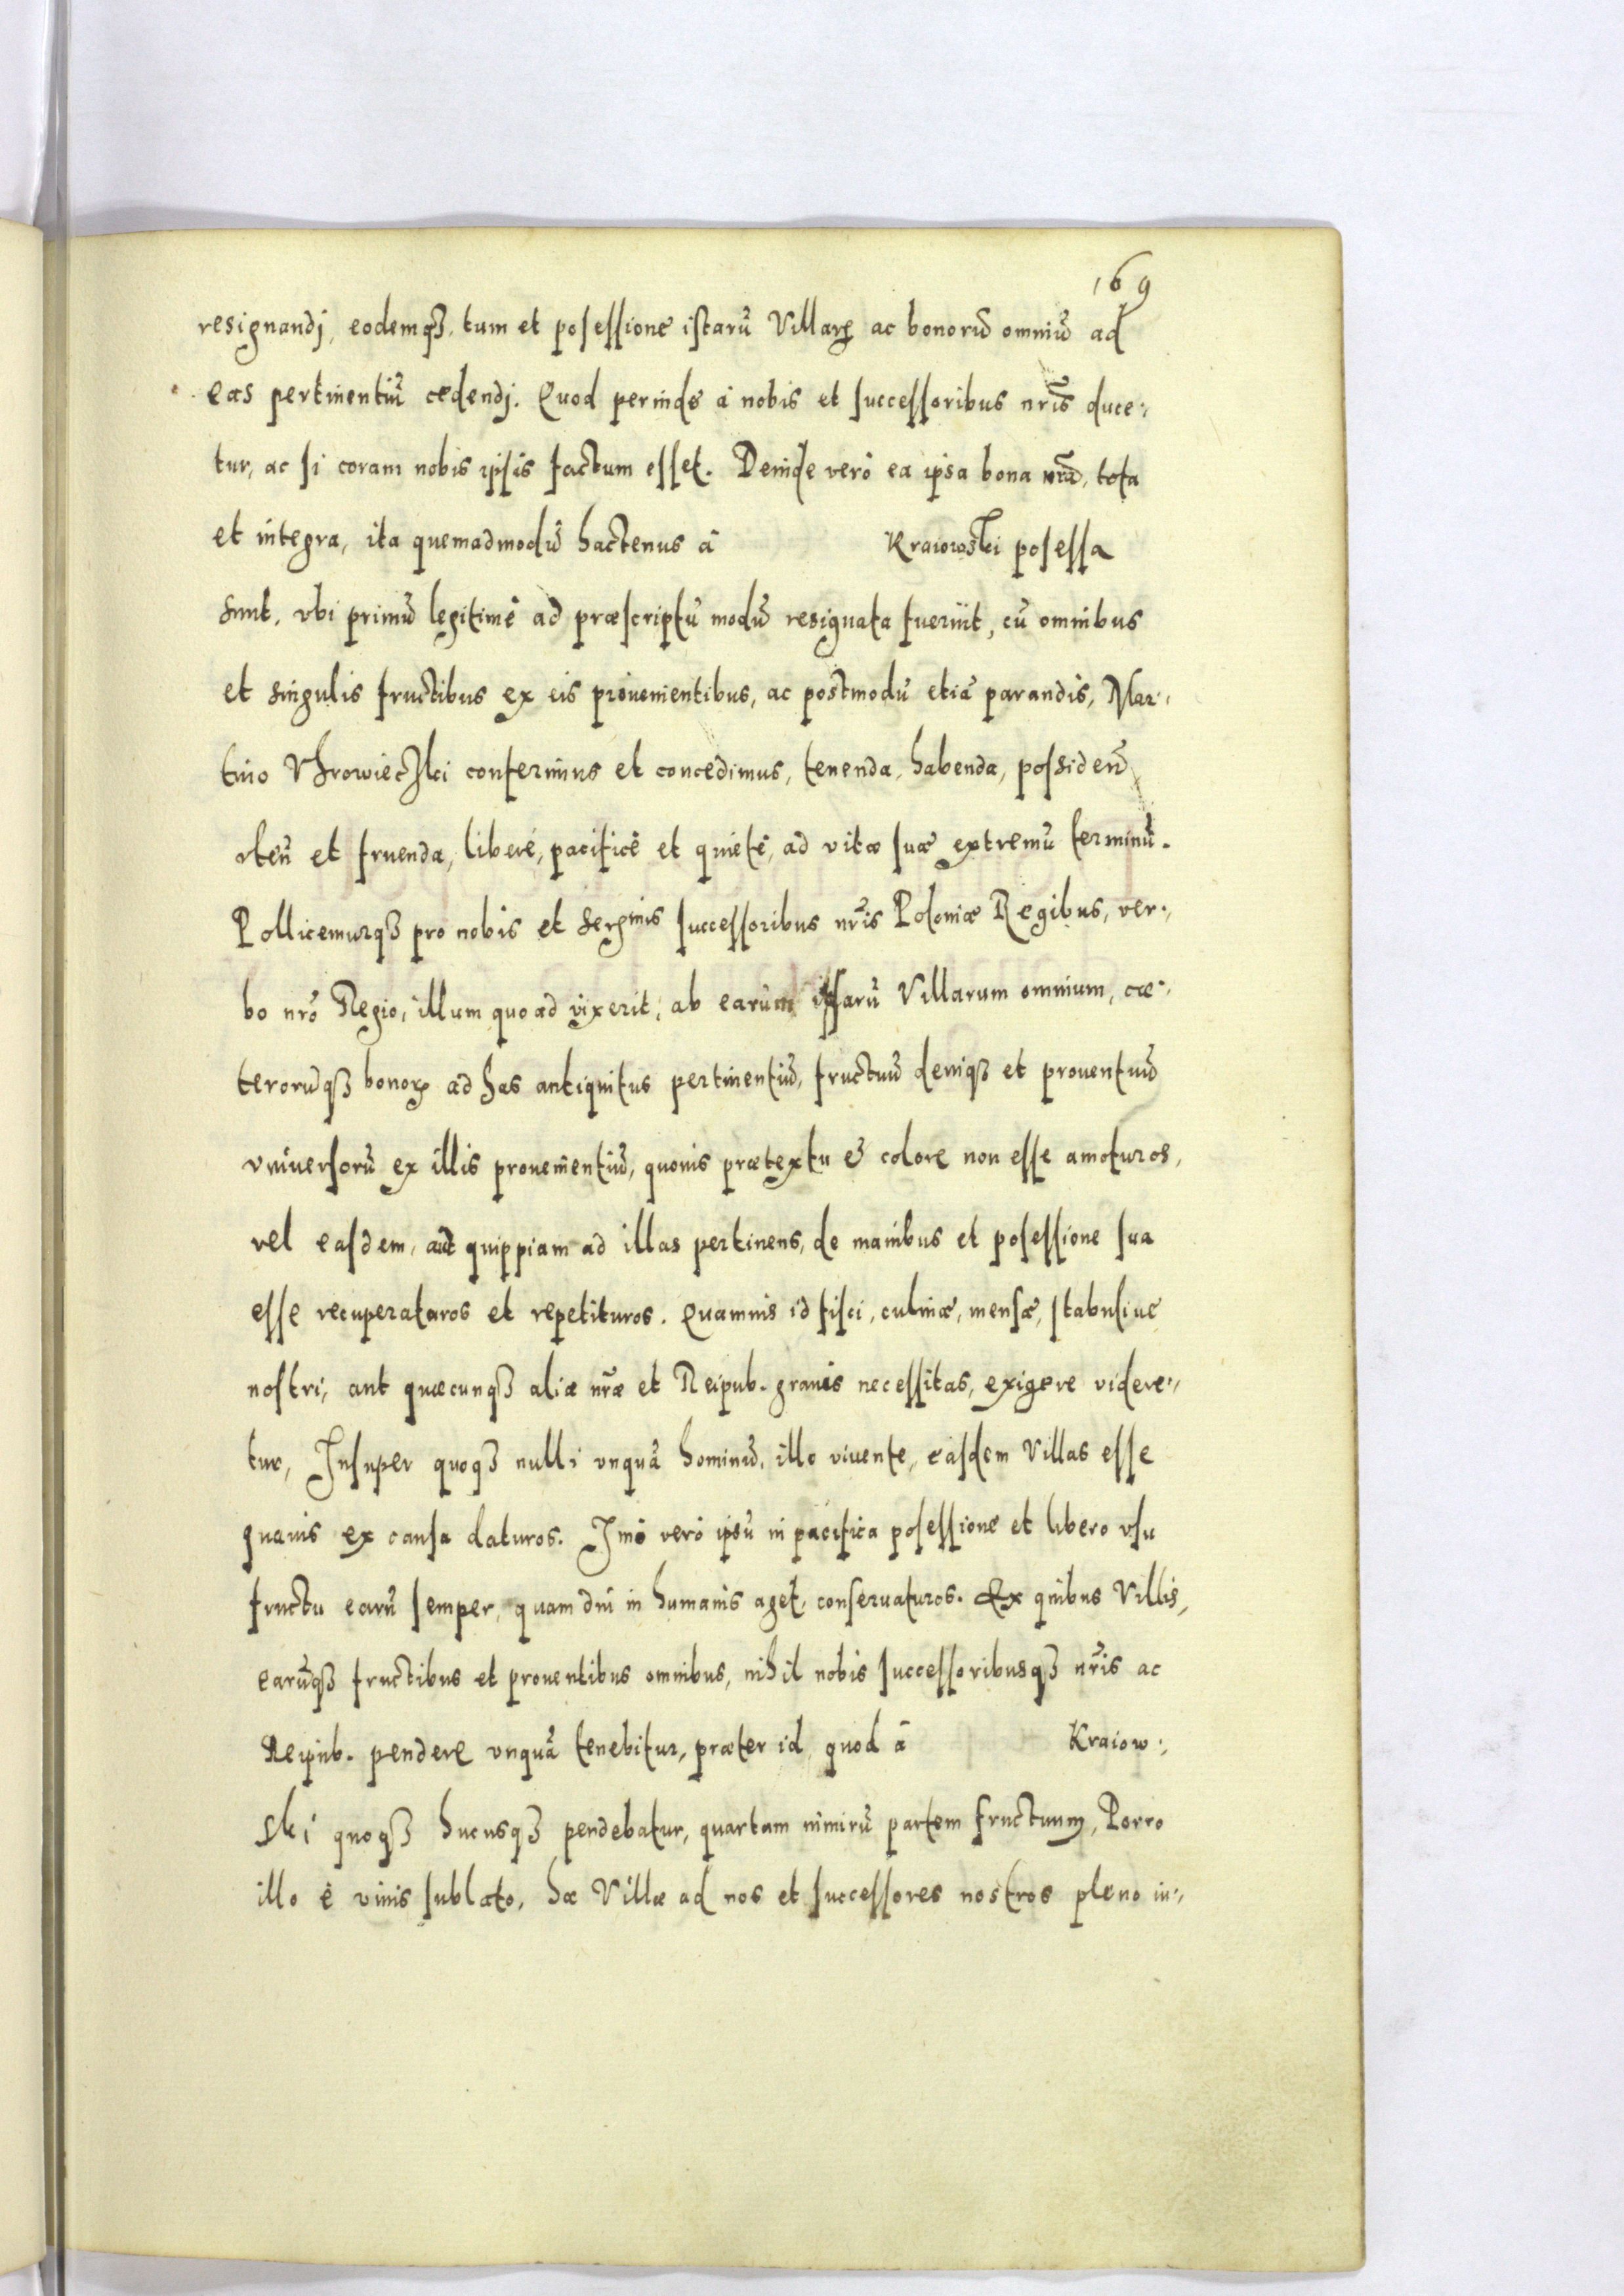 169
resignandj, eodemqꝫ, tum et posessione istarũ Villarꝝ ac bonorũ omniũ ad
eas pertinentiũ cedendj. Quod perinde à nobis et successoribus nr̃is duce⸗
tur, ac si coram nobis ipsis factum esset. Deinde verò ea ipsa bona nr̃a, tota
et integra, ita quemadmodũ hactenus à Kraiowski posessa
sunt, vbi primũ legitimè ad præscriptũ modũ resignata fuerĩt, cũ omnibus
et singulis fructibus ex eis prouenientibus, ac postmodũ etiã parandis, Mar⸗
tino Vhrowieczki conferimus et concedimus, tenenda, habenda, possideñ
vteñ et fruenda, liberè, pacificè et quietè, ad vitæ suæ extremũ terminũ.
Pollicemurqꝫ pro nobis et Serꝫmis successoribus nr̃is Poloniæ Regibus, ver⸗
bo nr̃o Regio, illum quoad vixerit, ab earum ipsarũ Villarum omnium, cæ⸗
terorũqꝫ bonorꝝ ad has antiquitus pertinentiũ, fructuũ deniqꝫ et prouentuũ
vniuersorũ ex illis prouenientiũ, quouis prætextu & colore non esse amoturos,
vel easdem, aut quippiam ad illas pertinens, de manibus et posessione sua
esse recuperaturos et repetituros. Quamuis id fisci, culinæ, mensæ, stabuliue
nostri, aut quæcunqꝫ aliæ nr̃æ et Reipub. grauis necessitas, exigere videre⸗
tur, Insuper quoqꝫ nulli vnquã hominũ, illo viuente, easdem Villas esse
quauis ex causa daturos. Imò verò ipsũ in pacifica posessione et libero vsu
fructu earũ semper, quam diu in humanis aget, conseruaturos. Ex quibus Villis,
earũqꝫ fructibus et prouentibus omnibus, nihil nobis successoribusqꝫ nr̃is ac
Reipub. pendere vnquã tenebitur, præter id, quod à Kraiow⸗
ski quoqꝫ hucusqꝫ pendebatur, quartam nimirũ partem fructuum, Porro
illo è viuis sublato, hæ Villæ ad nos et successores nostros pleno iu⸗